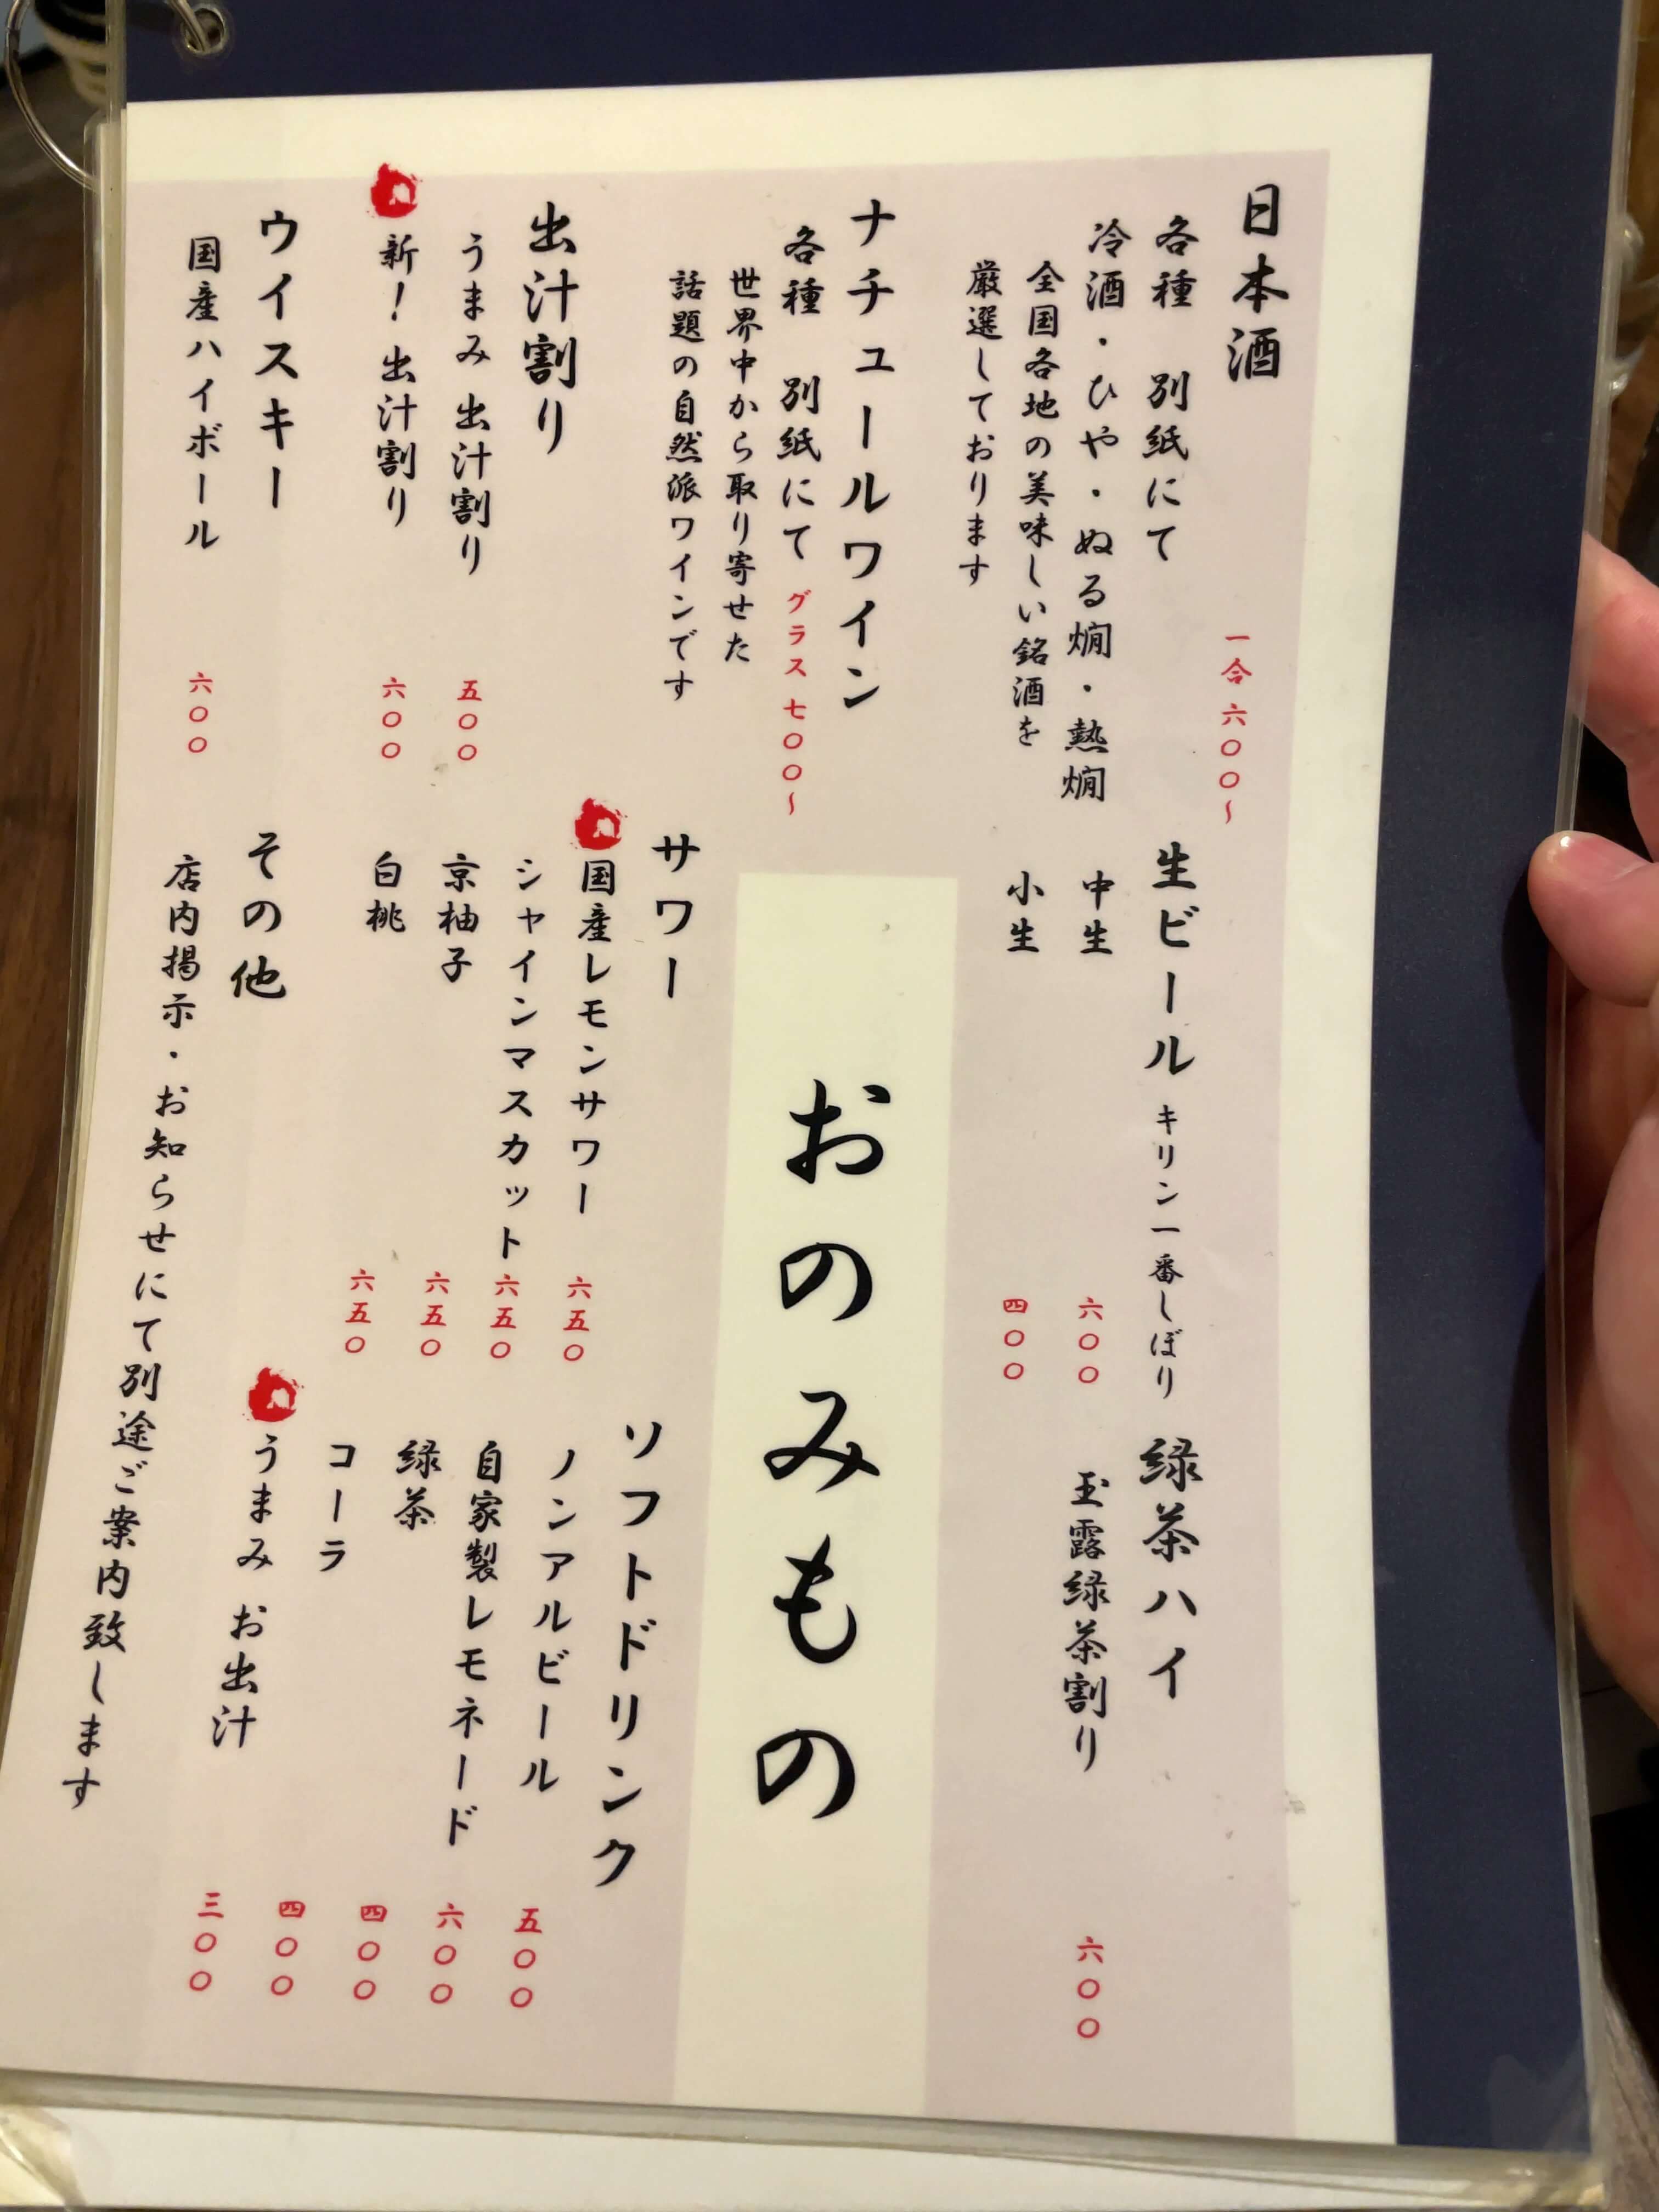 日本酒
一合 六〇〇～
各種 別紙にて
冷酒・ひや・ぬる燗・熱燗
全国各地の美味しい銘酒を
厳選しております
ナチュールワイン
各種 別紙にて グラス 七〇〇～
世界中から取り寄せた
話題の自然派ワインです
出汁割り
うまみ 出汁割り 五〇〇
新！ 出汁割り 六〇〇
ウイスキー
国産ハイボール 六〇〇
生ビール キリン一番しぼり
中生 六〇〇
小生 四〇〇
緑茶ハイ
玉露緑茶割り 六〇〇
おのみもの
サワー
国産レモンサワー 六五〇
シャインマスカット 六五〇
京柚子 六五〇
白桃 六五〇
ソフトドリンク
ノンアルビール 五〇〇
自家製レモネード 六〇〇
緑茶 四〇〇
コーラ 四〇〇
うまみ お出汁 三〇〇
その他
店内掲示・お知らせにて別途ご案内致します